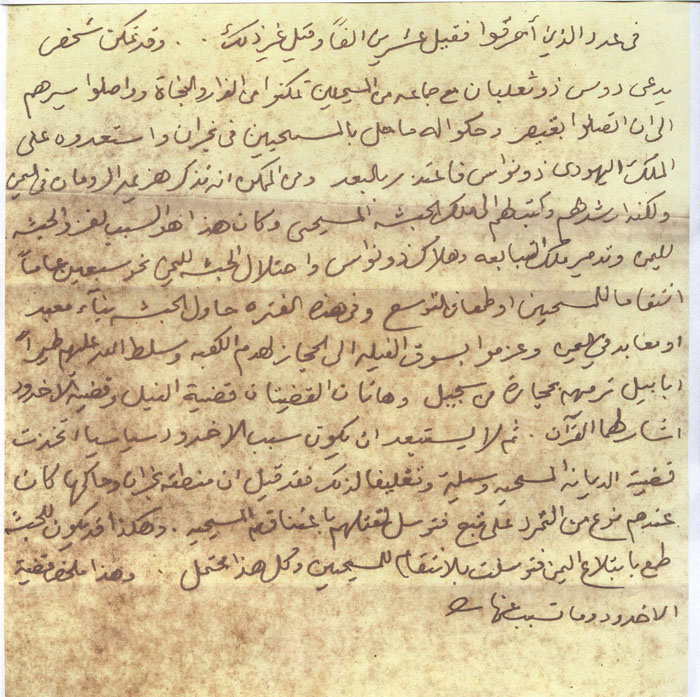 فى عدد الذين أحرقوا فقيل عشرين الفاً وقيل غير ذلك . . وقد تمكن شخص
يدعى دوس ذو ثعلبان مع جماعه من المسيحيين تمكنوا من الفرار والنجاة وواصلوا سيرهم
الى ان اتصلوا بقيصر وحكوا له ما حل بالمسيحيين فى نجران واستعدوه على
الملك اليهودى ذو نواس فاعتذر بالبعد ومن الممكن انه تذكر هزيمة الرومان فى اليمن
ولكنه ارشدهم وكتب لهم الى ملك الحبشه المسيحى وكان هذا هو السبب لغزو الحبشه
لليمن وتدمير ملك التبابعه وهلاك ذو نواس واحتلال الحبشه لليمن نحو سبعين عاماً
انتقاما للمسيحيين او طمعا فى التوسع وفى هذه الفتره حاول الحبشه بناء معبد
او معابد فى اليمن وعزموا بسوق الفيله الى الحجاز لهدم الكعبه وسلط الله عليهم طيراً
ابابيل ترميهم بحجارة من سجيل وهاتان القضيتان قضية الفيل وقضية الاخدود
اشار لهما القرآن . ثم لا يستبعد ان يكون سبب الاخدود سياسيا اتخذت
قضية الديانه المسيحيه وسيلة وتغليفا لذلك فقد قيل ان منطقة نجران وحاكمها كان
عندهم نوع من التمرد على تبع فتوسل لقتلهم باعتناقهم المسيحيه . وهكذا قد يكون للحبشه
طمع بابتلاع اليمن فتوسلت بالانتقام للمسيحيين وكل هذا محتمل . وهذا ملخص قضية
الاخدود وما تسبب عنها